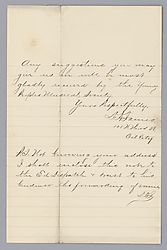 Any suggestions you may
give us we will be most
gladly received by the Young
Peoples Musical Society
Yours Respectfully
Oak City
P.S. Not knowing your address
I shall enclose this note
the Ed. Dispatch & trust to his
kindness the forwarding of same